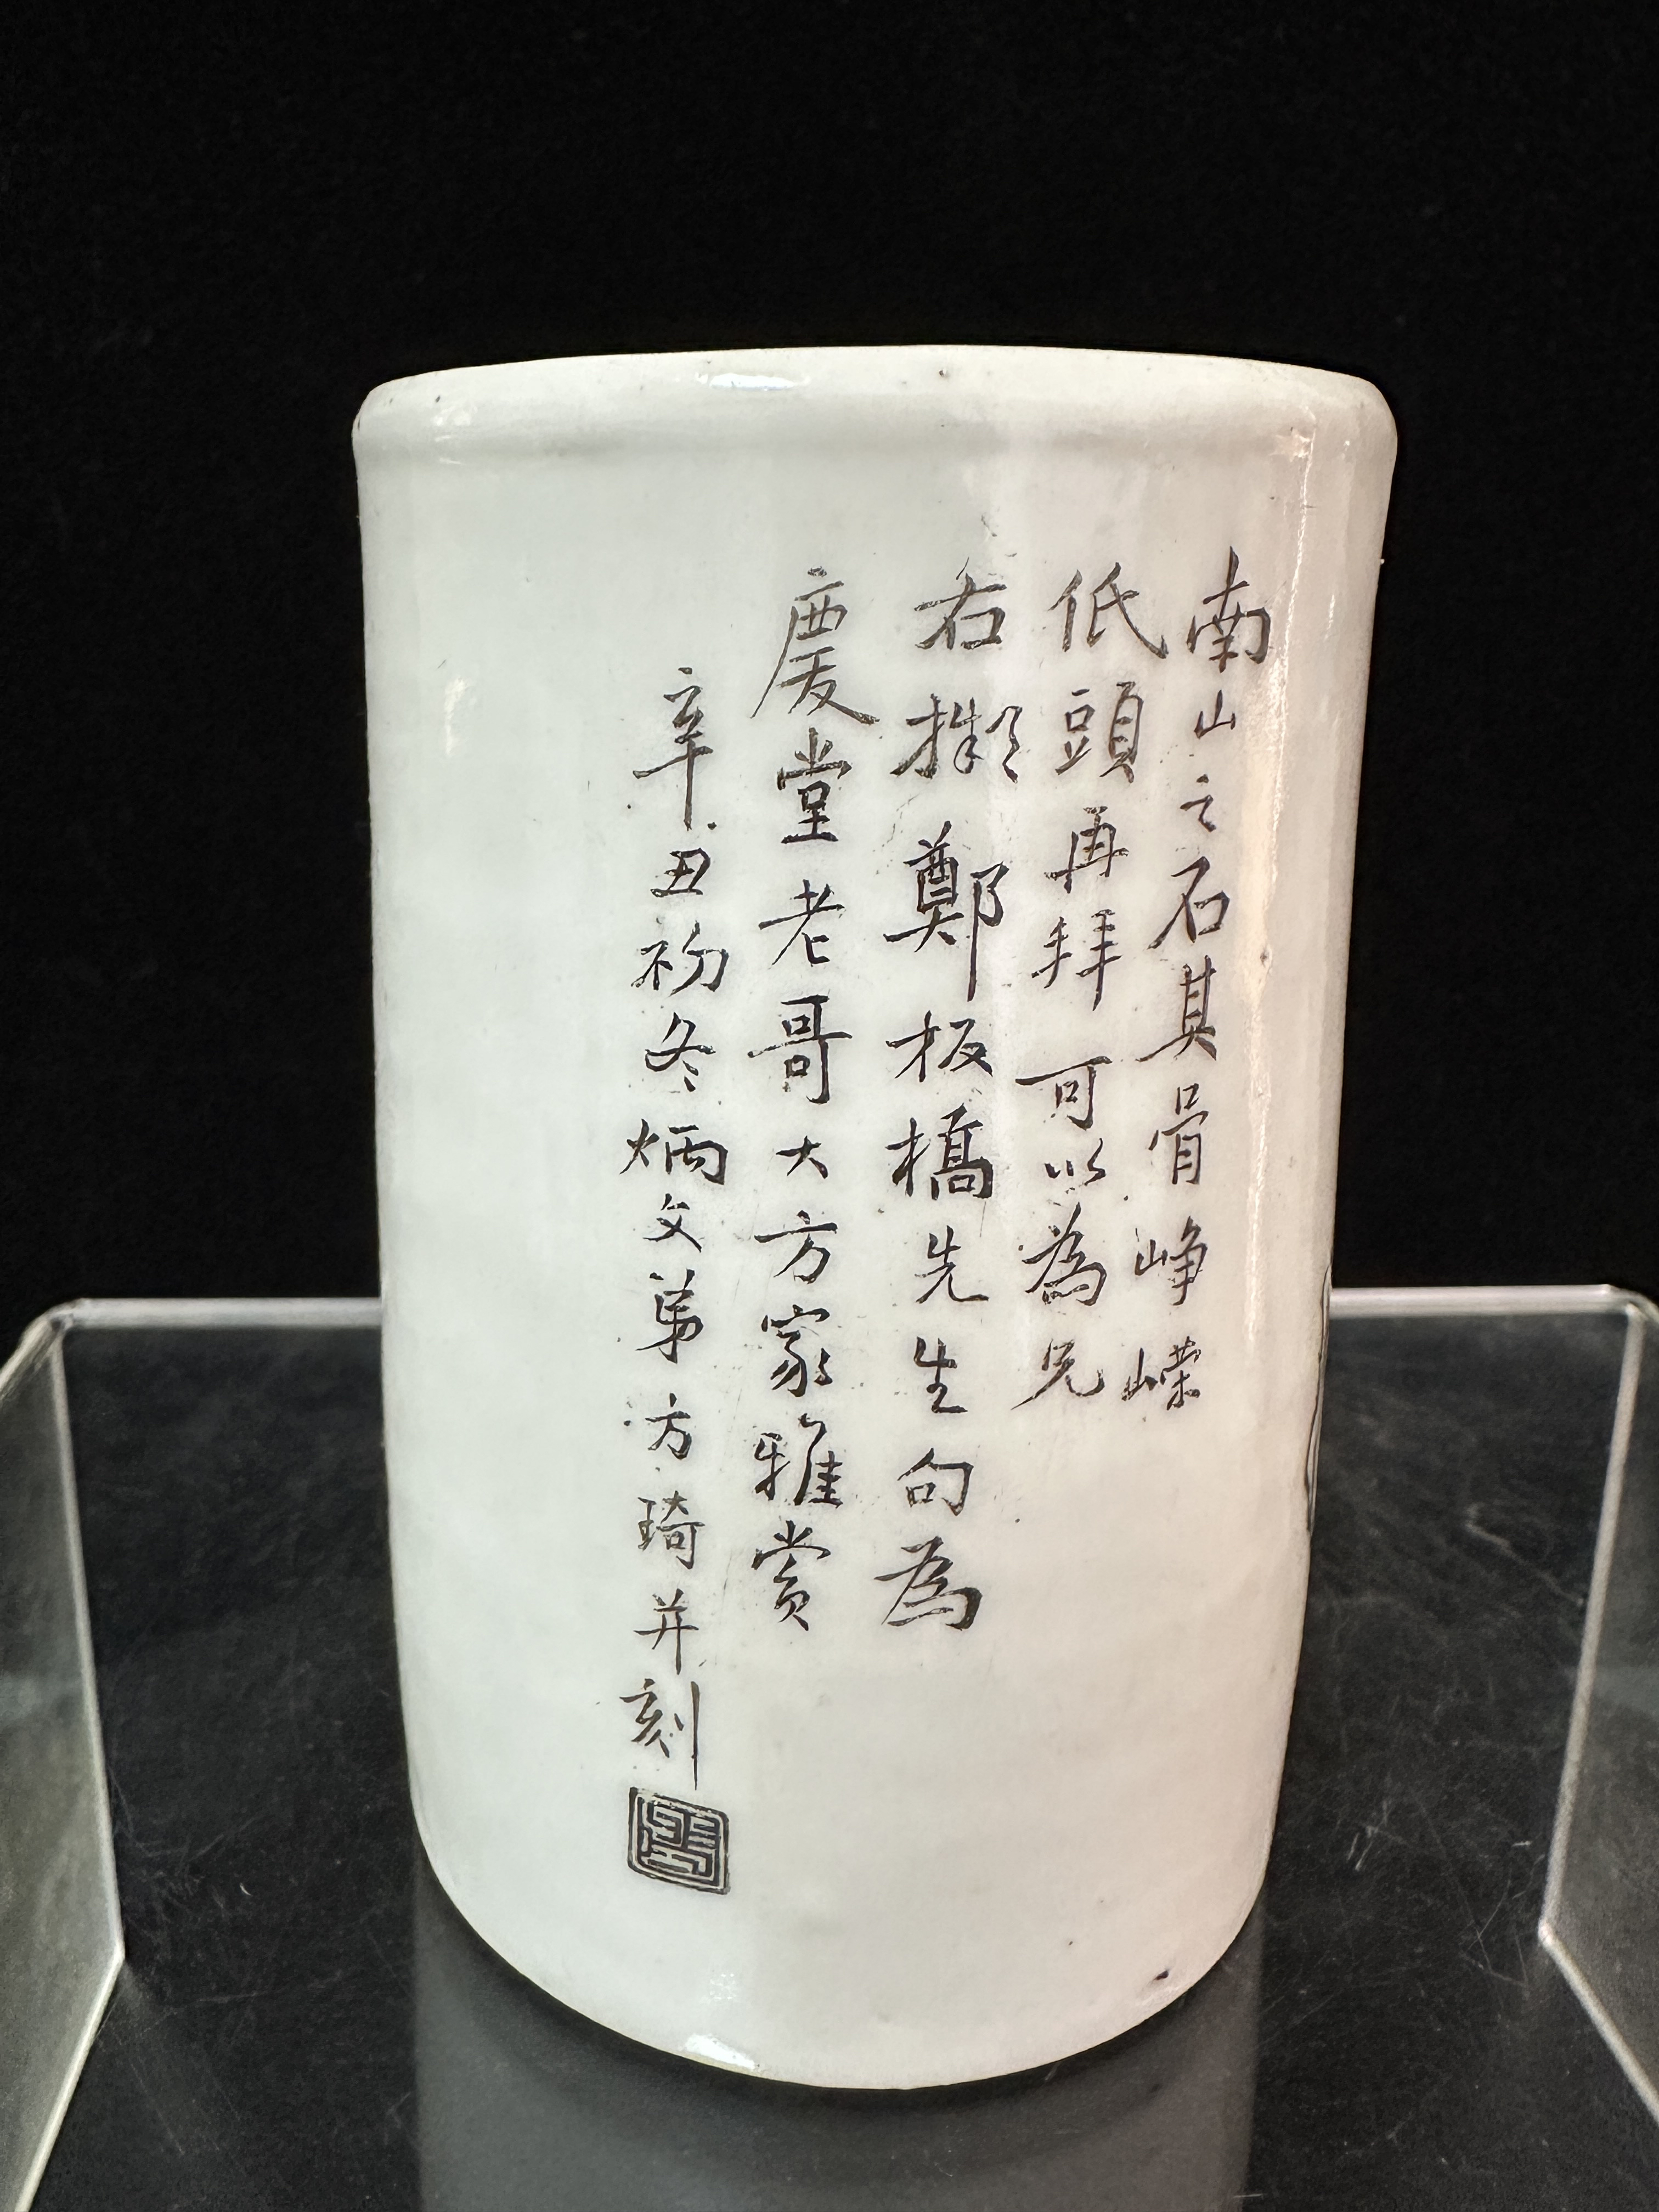 南山之石其骨峥嶸
低頭再拜可以為兄
右擬鄭板橋先生句為
慶堂老哥大方家雅赏
辛丑初冬炳文弟方琦并刻